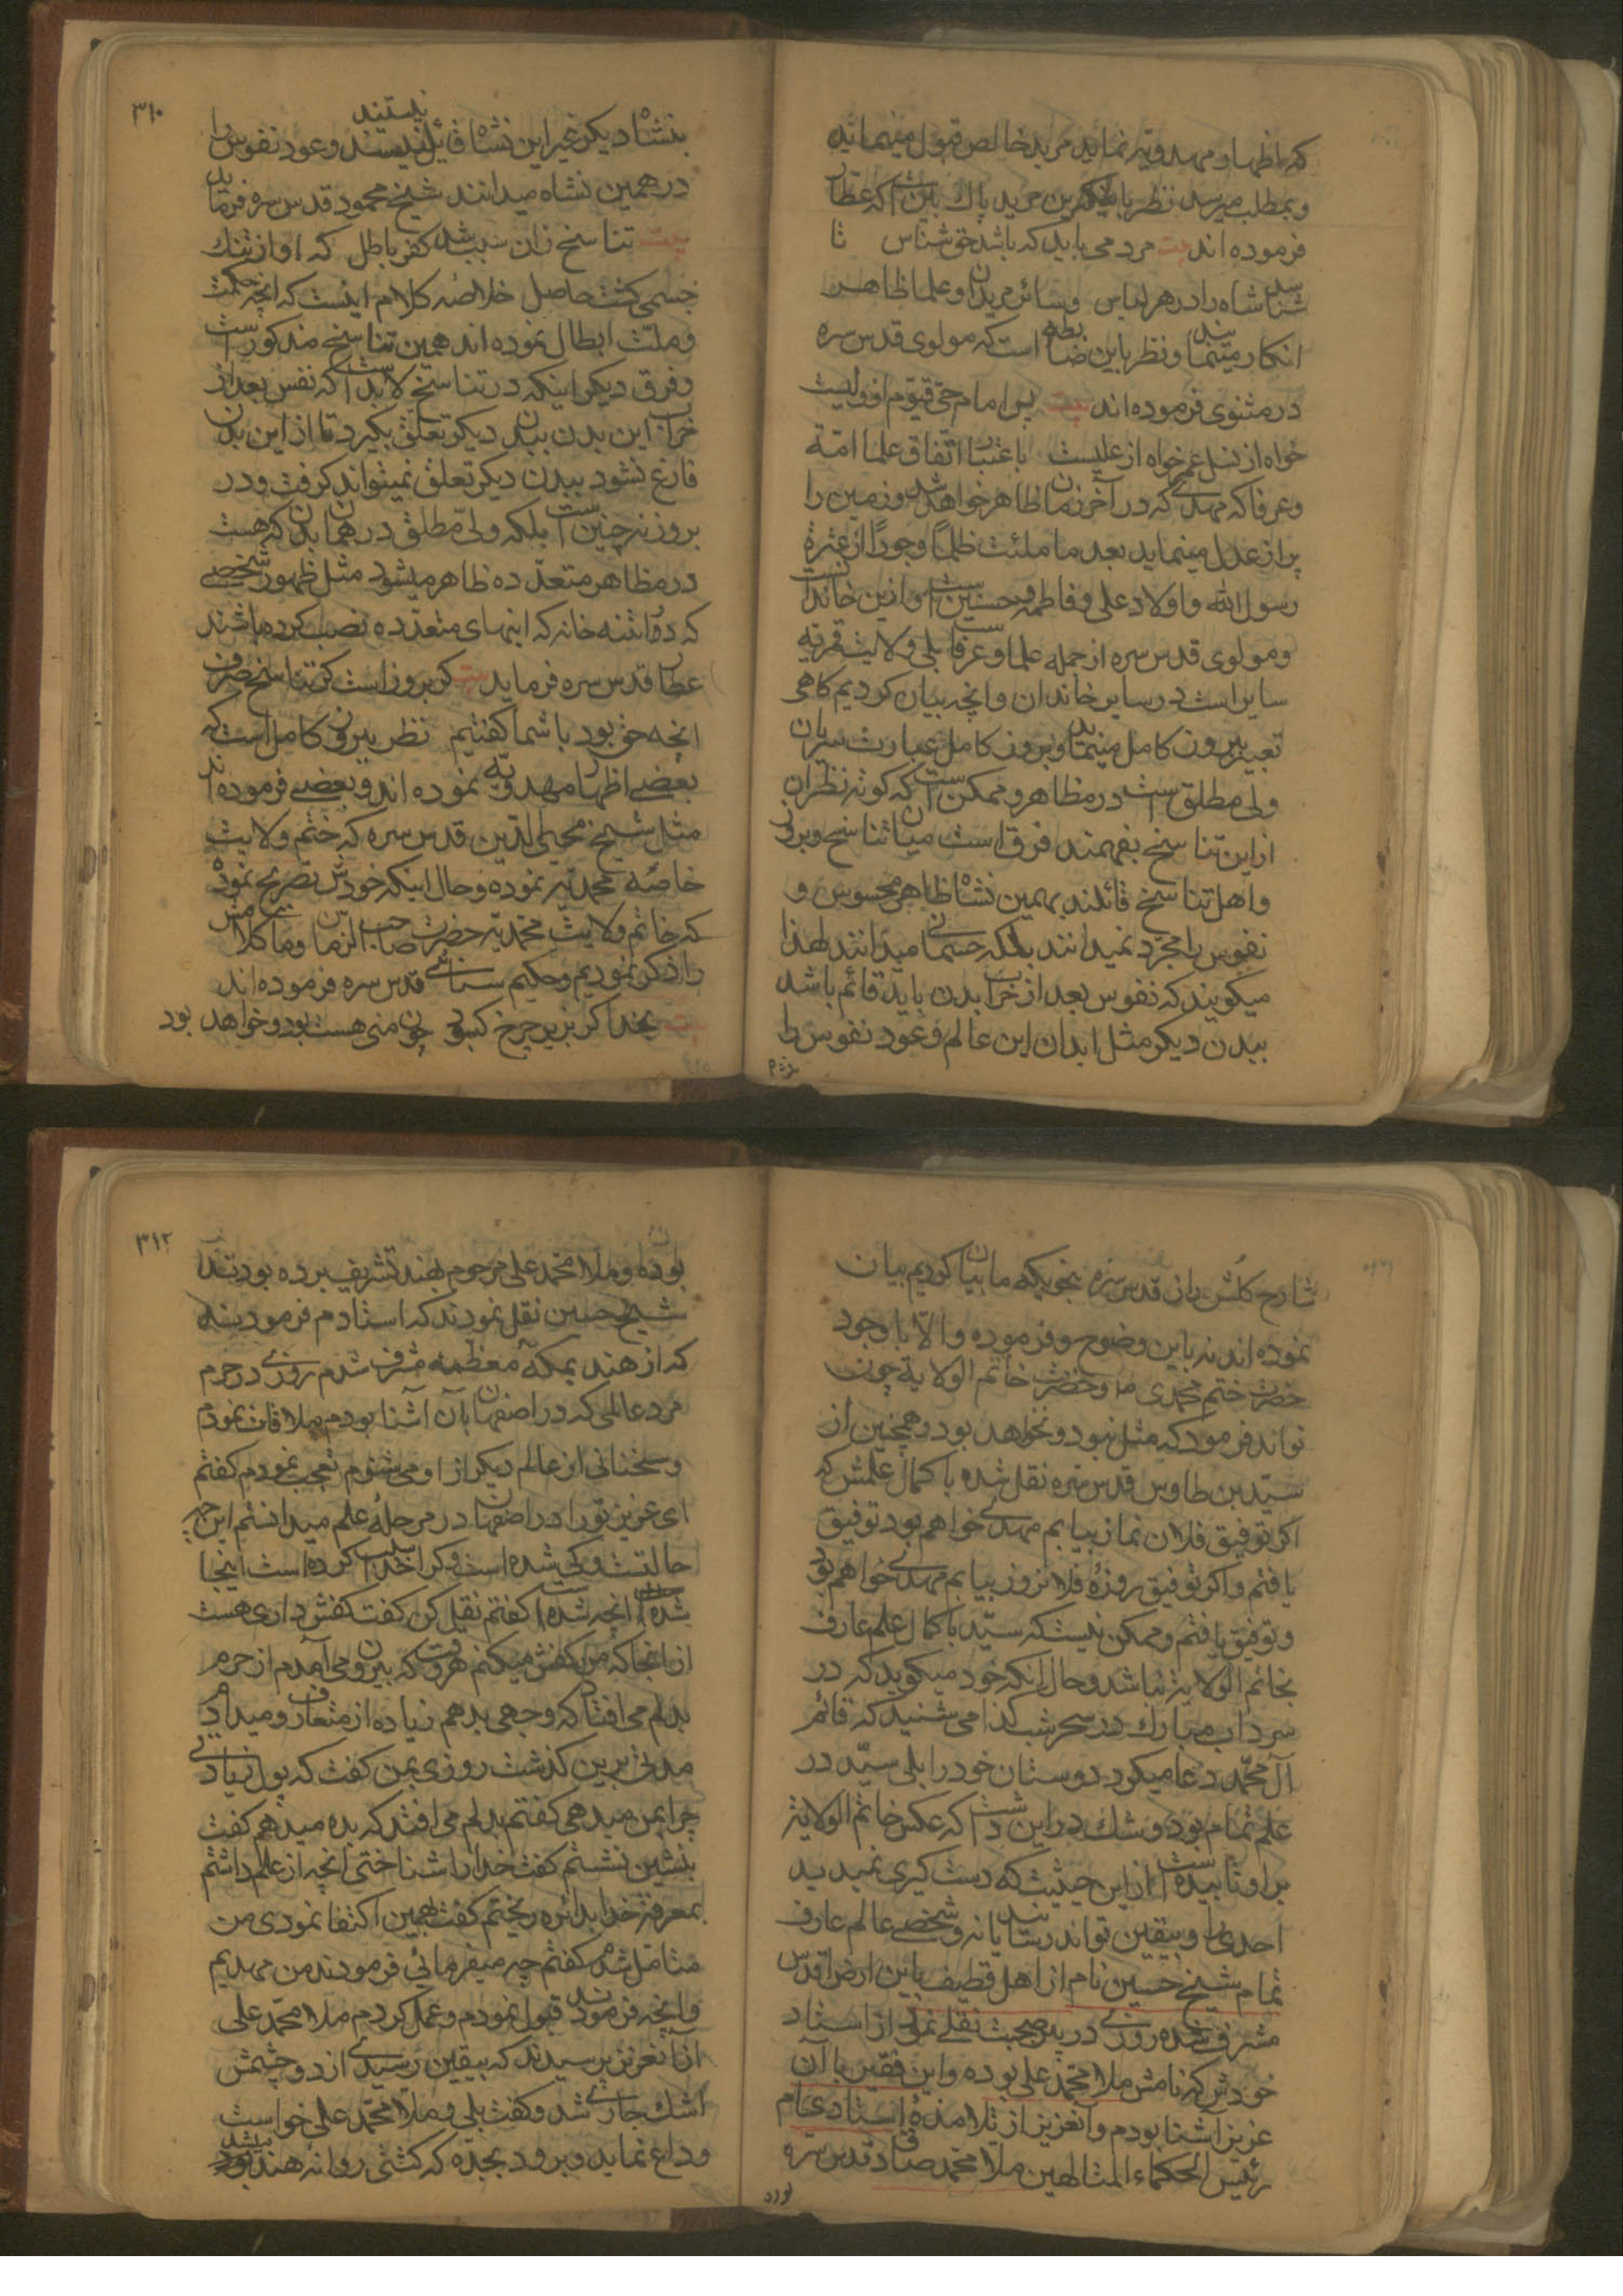 که اظهار مهدویه نماید مرید خالص قبول مینماید
و بمطلب میرسد نظر باینکه مرید پاک باین است که عطار
فرموده اند بیت مرد می باید که باشد حق شناس تا
شناسد شاه را در هر لباس و سائر مریدان و علما ظاهر
انکار مینمایند و نظر باین ضابطه است که مولوی قدس سره
در مثنوی فرموده اند بیت پس امام حی قیوم او ولیست
خواه از نسل عمر خواه از علیست باعتبار اتفاق علما امة
و عرفا که مهدی که در آخر زمان ظاهر خواهد شد و زمین را
پر از عدل مینماید بعد ما ملئت ظلماً و جوراً از عترة
رسول الله و اولاد علی و فاطمه و حسنین است و از این خاندانست
و مولوی قدس سره از جمله علما و عرفاست بلی ولایت قمریه
سایر است در سایر خاندان و انچه بیان کردیم کاهی
تعبیر ببروز کامل مینماید و بروز کامل عبارت سریان
ولی مطلق است در مظاهر و ممکن است که کوته نظران
از این تناسخ بفهمند فرق است میان تناسخ و بروز
و اهل تناسخ قائلند بهمین نشاه ظاهر محسوس و
نفوس را مجرد نمیدانند بلکه جسمانی میدانند لهذا
میکویند که نفوس بعد از خراب بدن باید قائم باشد
ببدن دیکر مثل ابدان این عالم و عود نفوس را
۳۱۰
بنشاه دیکر غیر این نشاه قائل نیستند و عود نفوس را
در همین نشاه میدانند شیخ محمود قدس سره فرماید
بیت تناسخ زان سبب شد کفر باطل که او از تنک
چسمی کشت حاصل خلاصه کلام اینست که انچه حکمت
و ملت ابطال نموده اند همین تناسخ مذکور است
و فرق دیکر اینکه در تناسخ لابد است که نفس بعد از
خراب این بدن ببدن دیکر تعلق بکیرد تا از این بدن
فارغ نشود ببدن دیکر تعلق نمیتواند کرفت و در
بروز نه چنین است بلکه ولی مطلق در همان بدن که هست
در مظاهر متعدده ظاهر میشود مثل ظهور شخصی
که در اینه خانه که اینهای متعدده نصب کرده باشند
عطار قدس سره فرماید بیت کر بروز است کر تناسخ حضرون
انچه حق بود با شما کفتیم نظر ببروز کامل است که
بعضی اظهار مهدویه نموده اند و بعضی فرموده اند
مثل شیخ محیی الدین قدس سره که ختم ولایت
خاصه محمدیه نموده و حال اینکه خودش تصریح نموده
که خاتم ولایت محمدیه حضرت صاحب الزمان و ما کلامش
را ذکر نمودیم و حکیم سنائی قدس سره فرموده اند
بیت بخدا کر بزیر چرخ کبود چون منی هست بود و خواهد بود
شارح کلشن راز قدس سره بنحویکه ما بیان کردیم بیان
نموده اند نه باین وضوح و فرموده و الا با وجود
حضرت ختم محمدی ص و حضرت خاتم الولایة چون
تواند فرمود که مثل نبود و نخواهد بود و همچنین از
سید بن طاوس قدس سره نقل شده با کمال علمش که
اکر توفیق فلان نماز بیابم مهدی خواهم بود توفیق
یافتم و اکر توفیق روزه فلان روز بیابم مهدی خواهم بود
و توفیق یافتم و ممکن نیست که سید با کمال علم عارف
بخاتم الولایة نباشد و حال آنکه خود میکوید که در
سرداب مبارک در سحر شب کذا می شنید که قائم
آل محمد دعا میکرد دوستان خود را بلی سید در
علم تمام بود و شک در این نداشت که عکس خاتم الولایة
بر او تابیده است از این حیثیت که دست کیری نمیدید
احدی را و بیقین تواند رسانید یا نه و شخصی عالم عارف
تمام شیخ حسین نام از اهل قطیف باین ارض اقدس
مشرف شده روزی در بین صحبت نقلی نمود از استاد
خودش که نامش ملا محمد علی بوده و این فقیر با آن
عزیز اشنا بودم و آنعزیز از تلامذه استادی ام
رئیس الحکماء المتالهین ملا محمد صادق قدس سره
بود
۳۱۲
بوده و ملا محمد علی مرحوم بهند تشریف برده بودند
شیخ حسین نقل نمودند که استادم فرمودند
که از هند بمکه معظمه مشرف شدم روزی در حرم
مرد عالمی که در اصفهان بآن آشنا بودم ملاقات نمودم
و سخنانی از عالم دیکر از او می شنوم تعجب نمودم کفتم
ای عزیز تو را در اصفهان در مرحله علم میدانستم این چه
حالتست و کی شده است و کرا خدا سبب کرده است اینجا
شده است انچه شده است کفتم نقل کن کفت کفش داری هست
از انجا که من کفش میکنم هر وقت که بیرون می آمدم از حرم
بدلم می افتاد که وجهی بدهم زیاده از متعارف و میدادم
مدتی برین کذشت روزی بمن کفت که پول زیادی
چرا بمن میدهی کفتم بدلم می افتد که بده میدهم کفت
بنشین نشستم کفت خدا را شناختی انچه از علم داشتم
بمعرفة خدا بدائره ریختم کفت بهمین اکتفا نمودی من
متامل شدم کفتم چه میفرمائی فرمودند من مهدیم
و انچه فرمودند قبول نمودم و عمل کردم ملا محمد علی
از آنعزیز پرسیدند که بیقین رسیدی از دو چشمش
اشک جاری شد و کفت بلی و ملا محمد علی خواست
وداع نماید و برود بجده که کشتی روانه هند میشد